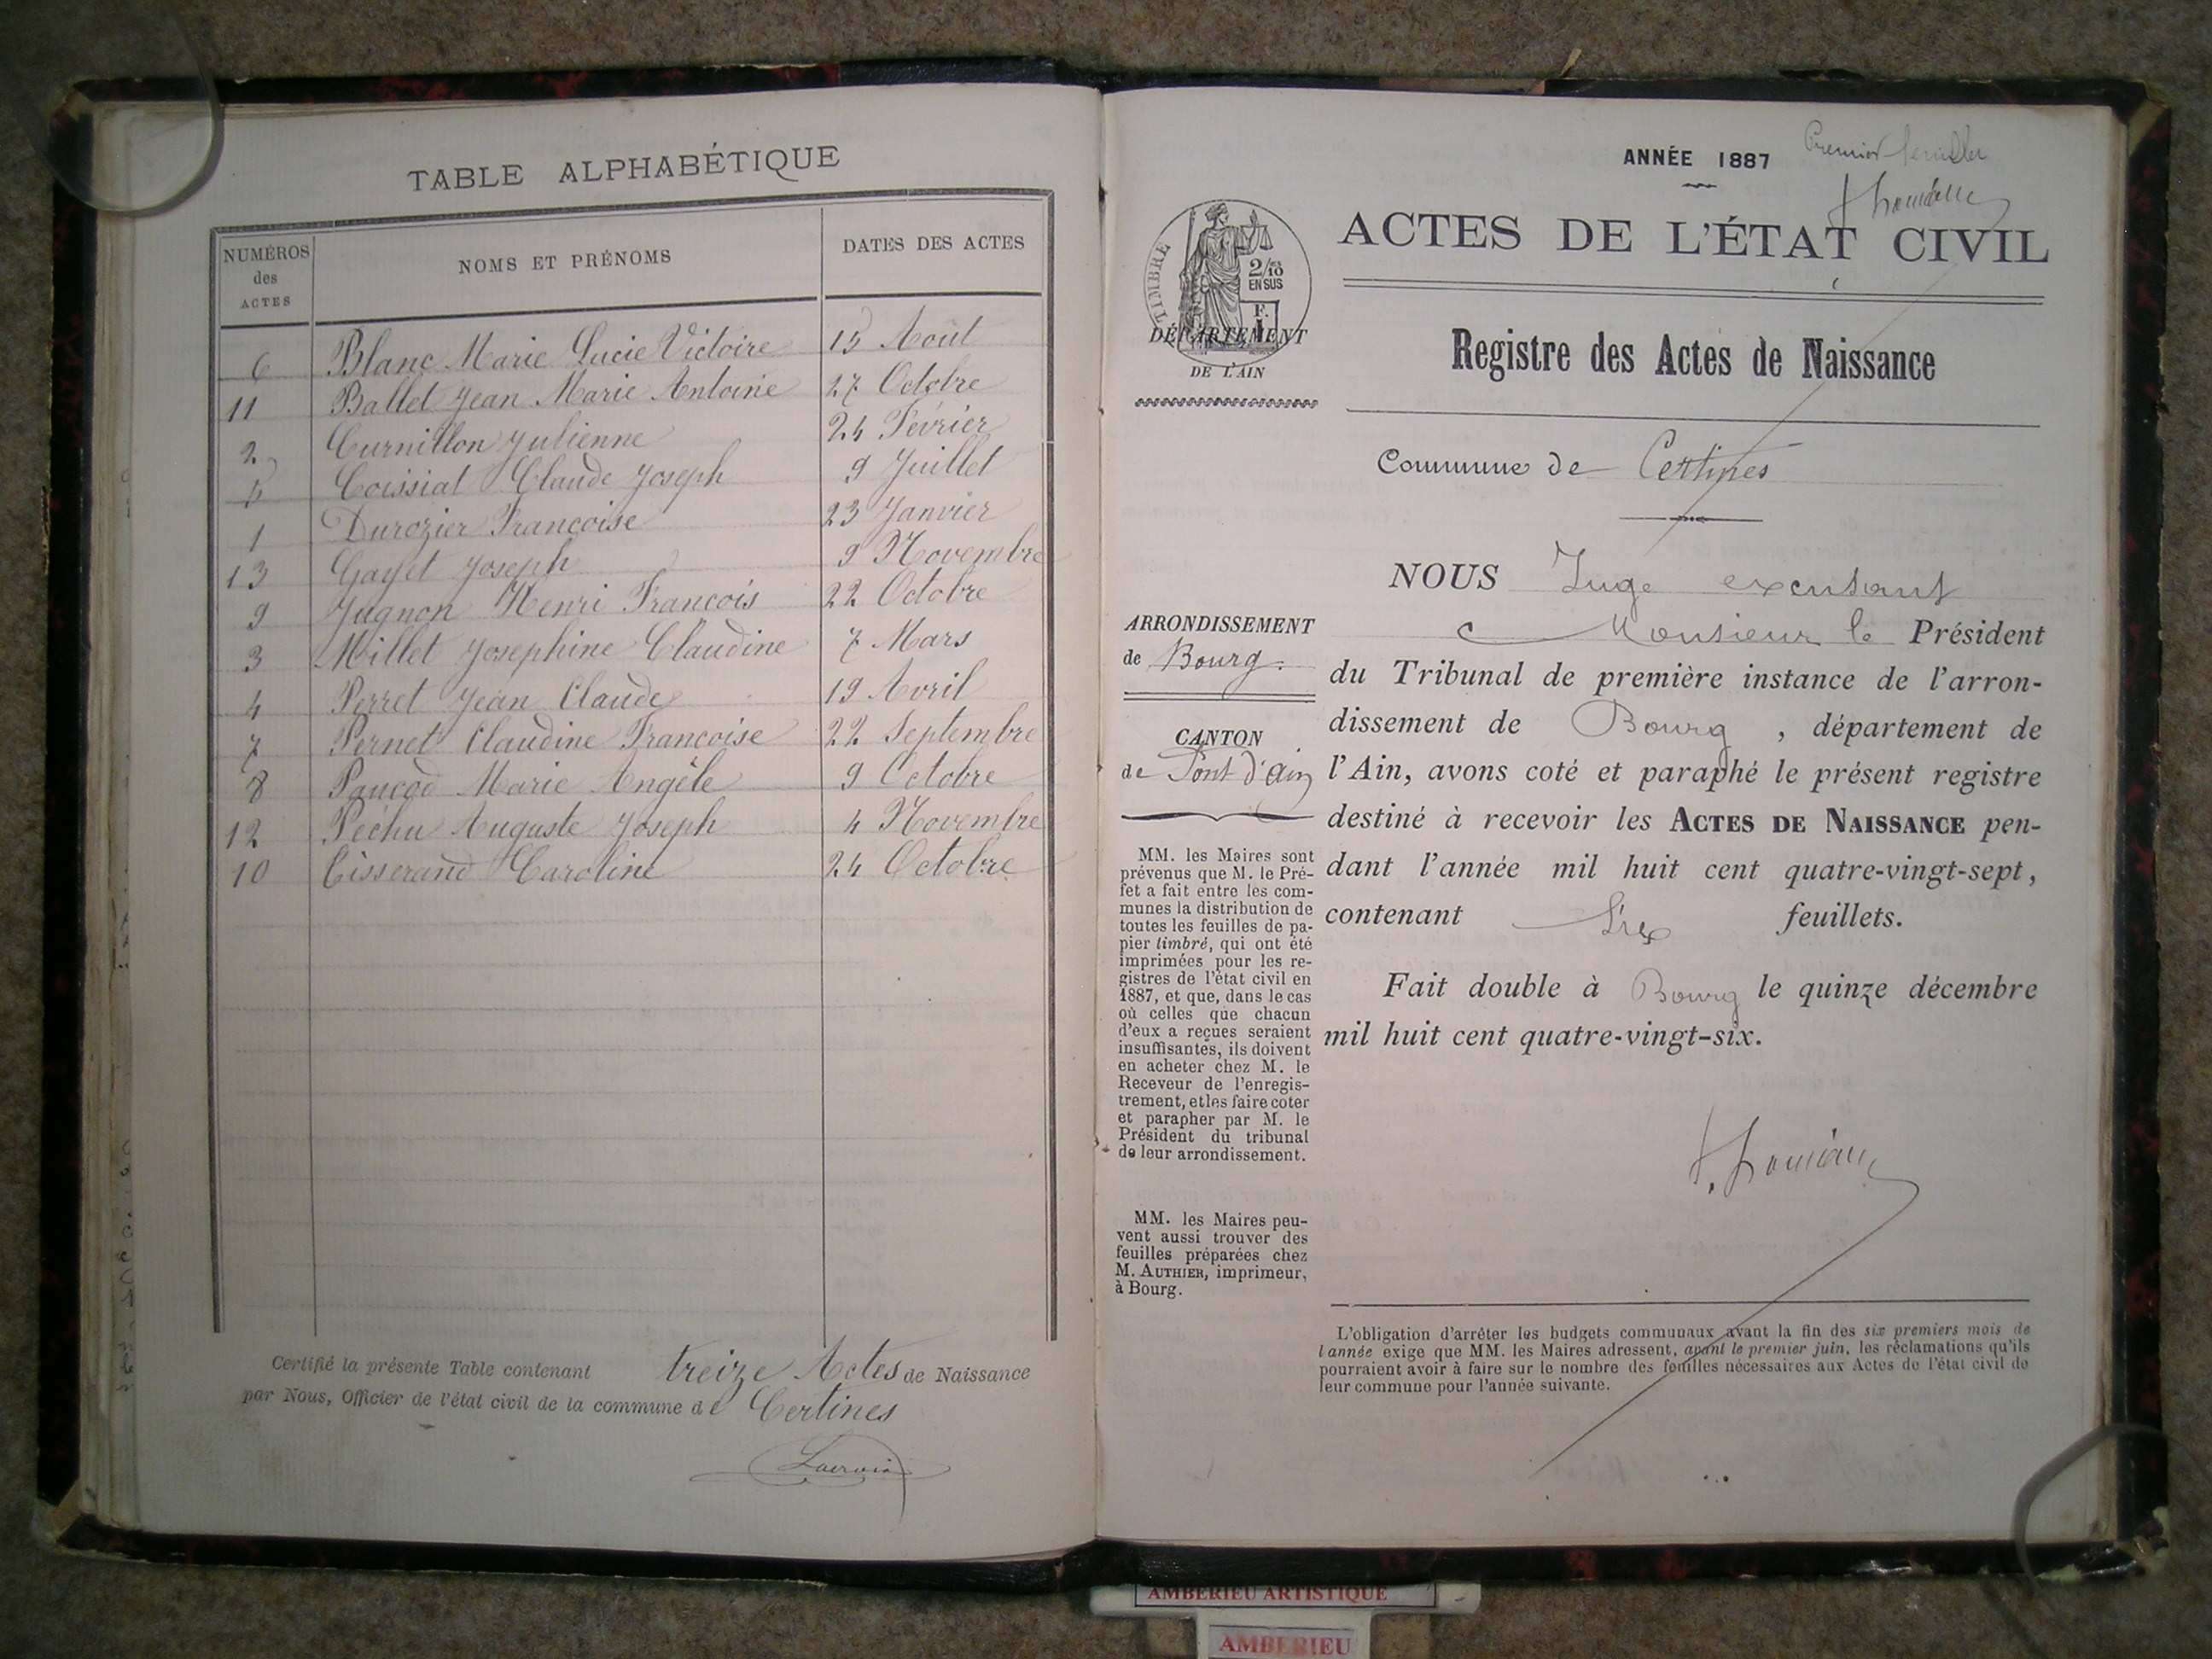 TABLE ALPHABÉTIQUE
NUMÉROS des ACTES
NOMS ET PRÉNOMS
DATES DES ACTES
6 Blanc Marie Lucie Victoire 15 Août
11 Ballet Jean Marie Antoine 27 Octobre
2 Curnillon Julienne 24 Février
5 Coissiat Claude Joseph 9 Juillet
1 Durozier Françoise 23 Janvier
13 Gayet Joseph 9 Novembre
9 Jugnon Henri François 22 Octobre
3 Millet Josephine Claudine 7 Mars
4 Perret Jean Claude 19 Avril
7 Pernet Claudine Françoise 22 Septembre
8 Paucod Marie Angèle 9 Octobre
12 Pechu Auguste Joseph 4 Novembre
10 Tisserand Caroline 24 Octobre
Certifié la présente Table contenant treize Actes de Naissance
par Nous, Officier de l'état civil de la commune de Certines
Lacroix
ANNÉE 1887
Premier feuillet
ACTES DE L'ÉTAT CIVIL
TIMBRE
2/10
EN SUS
F.
1
DÉPARTEMENT
DE L'AIN
Registre des Actes de Naissance
Commune de Certines
ARRONDISSEMENT
de Bourg.
CANTON
de Pont d'ain
MM. les Maires sont
prévenus que M. le Pré-
fet a fait entre les com-
munes la distribution de
toutes les feuilles de pa-
pier timbré, qui ont été
imprimées pour les re-
gistres de l'état civil en
1887, et que, dans le cas
où celles que chacun
d'eux a reçues seraient
insuffisantes, ils doivent
en acheter chez M. le
Receveur de l'enregis-
trement, et les faire coter
et parapher par M. le
Président du tribunal
de leur arrondissement.
MM. les Maires peu-
vent aussi trouver des
feuilles préparées chez
M. AUTHIER, imprimeur,
à Bourg.
NOUS Juge excusant
Monsieur le Président
du Tribunal de première instance de l'arron-
dissement de Bourg, département de
l'Ain, avons coté et paraphé le présent registre
destiné à recevoir les ACTES DE NAISSANCE pen-
dant l'année mil huit cent quatre-vingt-sept,
contenant feuillets.
Fait double à Bourg le quinze décembre
mil huit cent quatre-vingt-six.
L'obligation d'arrêter les budgets communaux avant la fin des six premiers mois de
l'année exige que MM. les Maires adressent, avant le premier juin, les réclamations qu'ils
pourraient avoir à faire sur le nombre des feuilles nécessaires aux Actes de l'état civil de
leur commune pour l'année suivante.
AMBERIEU ARTISTIQUE
AMBERIEU